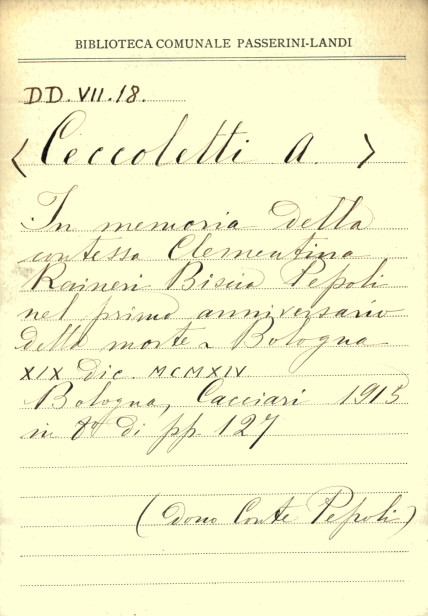 BIBLIOTECA COMUNALE PASSERINI-LANDI
DD. VII. 18.
< Ceccoletti A. >
In memoria della
contessa Clementina
Raineri Biscia Pepoli
nel primo anniversario
della morte ~ Bologna
XIX dic. MCMXIV
Bologna, Cacciari 1915
in 8° di pp. 127
(dono Conte Pepoli)